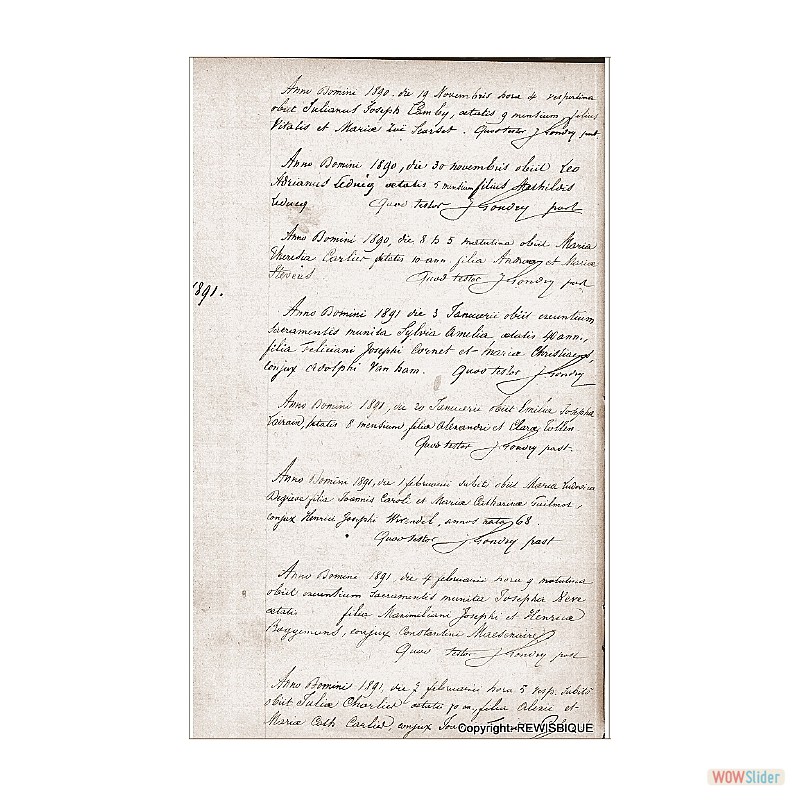 Anno Domini 1890, die 19 Novembris hora 4 vespertina
obiit Julianus Joseph Lamby, aetatis 9 mensium, filius
Vitalis et Mariae Zoë Scarset. Quod testor J Gondry past.
Anno Domini 1890, die 30 novembris obiit Leo
Adrianus aetatis 5 mensium filius Mathildis
Leducq Quod testor J Gondry past
Anno Domini 1890, die 8 h 5 matutina obiit Maria
Theresia Carlier aetatis 10 ann, filia et Mariae
Stevens Quod testor J Gondry past
1891.
Anno Domini 1891 die 3 Januarii obiit exeuntium
Sacramentis munita Sylvia Amelia aetatis 40 ann.,
filia Feliciani Josephi Cornet et Mariae
conjux Adolphi Van ham. Quod testor J Gondry
Anno Domini 1891, die 20 Januarii obiit Emilia Josepha
aetatis 8 mensium, filia Alexandri et Clarae
Quod testor J Gondry past.
Anno Domini 1891, die 1 februarii subito obiit Maria Ludovica
Degrave filia Joannis Caroli et Mariae Catharinae Guilmot,
conjux Henrici Josephi annos nata 68.
Quod testor J Gondry past
Anno Domini 1891, die 4 februarii hora 9 matutina
obiit exeuntium sacramentis munita Josepha
aetatis filia Maximiliani Josephi et Henricae
conjux Constantini
Quod testor J Gondry past
Anno Domini 1891, die 7 februarii hora 5 vesp. subito
obiit Julia Charlier aetatis filia Alexii et
Mariae Cath Carlier, conjux
Copyright-REWISBIQUE
WOWSlider